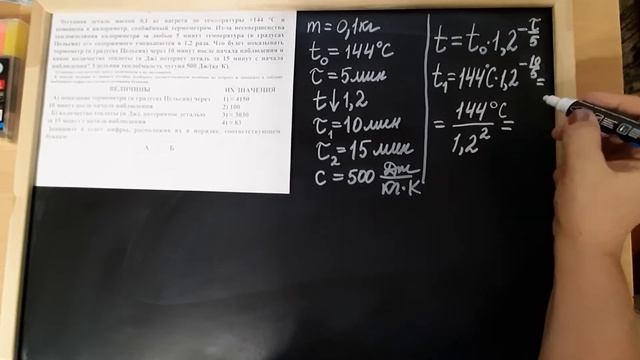 Чугунная деталь массой 0,1 кг нагрета до температуры +144 °C и
помещена в калориметр, снабжённый термометром. Из-за несовершенства
теплоизоляции калориметра за любые 5 минут температура (в градусах
Цельсия) его содержимого уменьшается в 1,2 раза. Что будет показывать
термометр (в градусах Цельсия) через 10 минут после начала наблюдения и
какое количество теплоты (в Дж) потеряет деталь за 15 минут с начала
наблюдения? Удельная теплоёмкость чугуна 500 Дж/(кг·К).
ВЕЛИЧИНЫ
ИХ ЗНАЧЕНИЯ
А) показание термометра (в градусах Цельсия) через
10 минут после начала наблюдения
Б) количество теплоты (в Дж), потерянное деталью
за 15 минут с начала наблюдения
1) ≈ 4150
2) 100
3) ≈ 3030
4) ≈ 83
Запишите в ответ цифры, расположив их в порядке, соответствующем
буквам:
А Б
m = 0,1 кг
t₀ = 144°C
τ = 5 мин
t ↓ 1,2
τ₁ = 10 мин
τ₂ = 15 мин
c = 500 Дж/кг·К
t = t₀·1,2^(-τ/5)
t₁ = 144°C·1,2^(-10/5) =
= 144°C/1,2² =